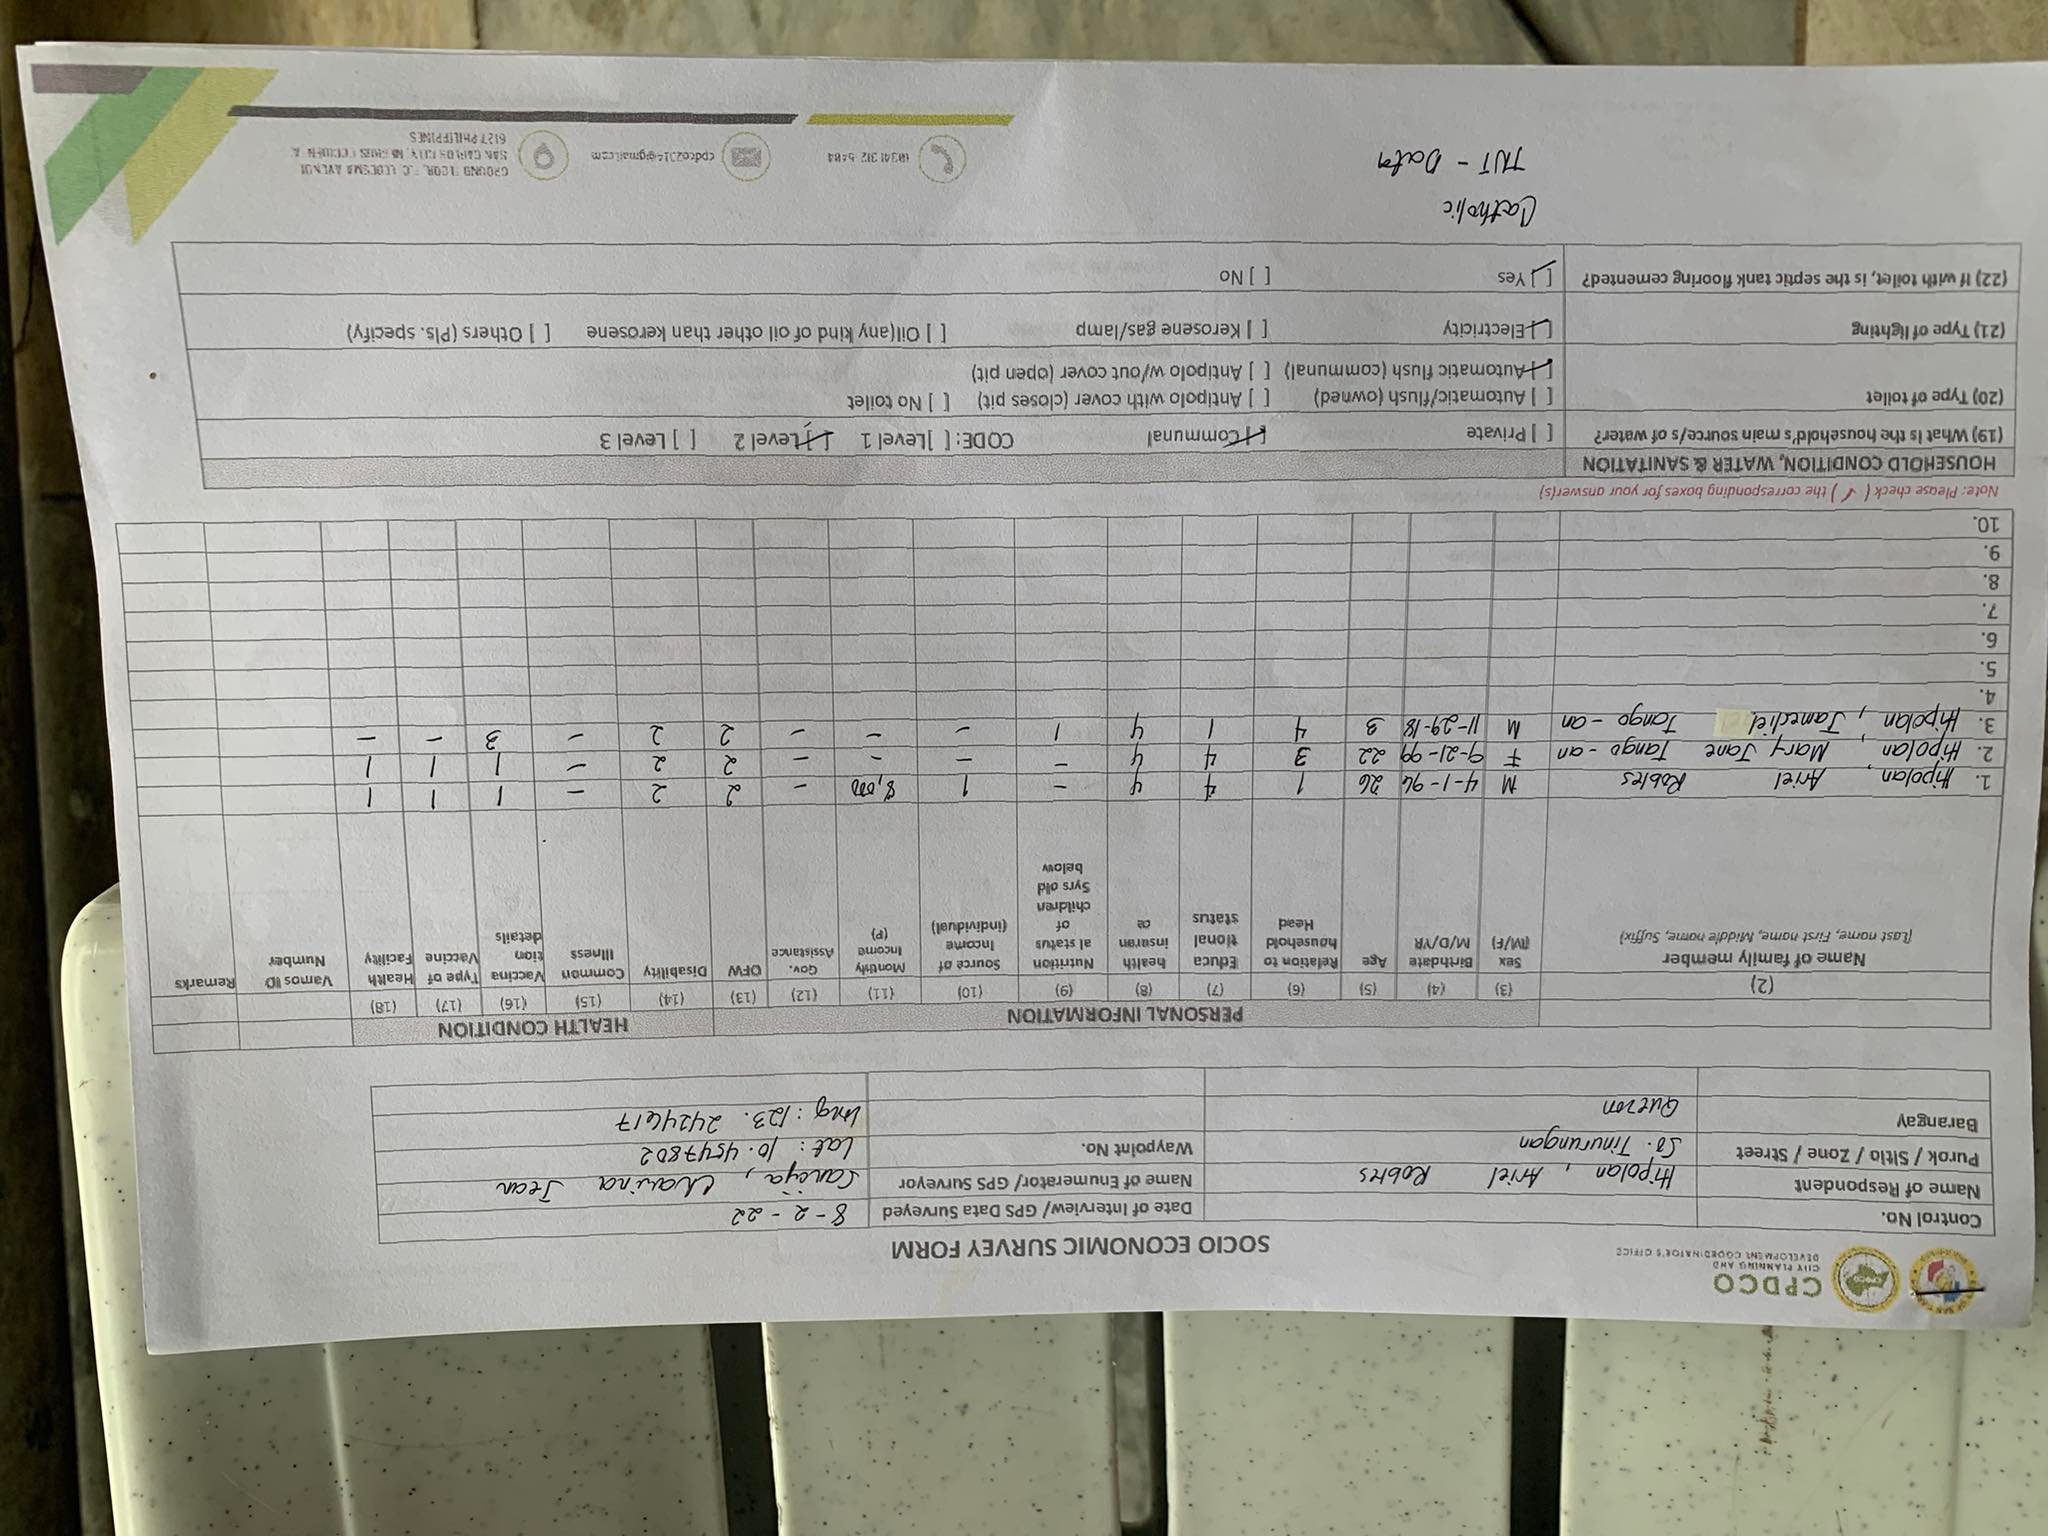 CPDCO
CITY PLANNING AND
DEVELOPMENT COORDINATOR'S OFFICE
SOCIO ECONOMIC SURVEY FORM
Control No.
Date of Interview/ GPS Data Surveyed 8-2-22
Name of Respondent Hipolan, Ariel Robles
Name of Enumerator/ GPS Surveyor Charina Jean
Purok / Sitio / Zone / Street So. Tinurungan
Waypoint No. Lat: 10.4547802
Barangay Quezon
Long: 123. 2424617
PERSONAL INFORMATION HEALTH CONDITION
(2) (3) (4) (5) (6) (7) (8) (9) (10) (11) (12) (13) (14) (15) (16) (17) (18)
Name of family member
(Last name, First name, Middle name, Suffix)
Sex (M/F)
Birthdate M/D/YR
Age
Relation to household Head
Educa tional status
health insuran ce
Nutrition al status of children 5yrs old below
Source of Income (individual)
Monthly Income (P)
Gov. Assistance
OFW
Disability
Common Illness
Vaccina tion details
Type of Vaccine
Health Facility
Vamos ID Number
Remarks
1. Hipolan, Ariel Robles M 4-1-96 26 1 4 4 - 1 8,000 - 2 2 - 1 1 1
2. Hipolan, Mary Jane Tango-an F 9-21-99 22 3 4 4 - - - - 2 2 - 1 1 1
3. Hipolan, Jamecliel Tango-an M 11-29-18 3 4 1 4 1 - - - 2 2 - 3 - -
4.
5.
6.
7.
8.
9.
10.
Note: Please check ( ✓ ) the corresponding boxes for your answer(s)
HOUSEHOLD CONDITION, WATER & SANITATION
(19) What is the household's main source/s of water? [ ] Private [✓] Communal CODE: [ ] Level 1 [✓] Level 2 [ ] Level 3
(20) Type of toilet [ ] Automatic/flush (owned) [ ] Antipolo with cover (closes pit) [ ] No toilet
[✓] Automatic flush (communal) [ ] Antipolo w/out cover (open pit)
(21) Type of lighting [✓] Electricity [ ] Kerosene gas/lamp [ ] Oil(any kind of oil other than kerosene [ ] Others (Pls. specify)
(22) If with toilet, is the septic tank flooring cemented? [✓] Yes [ ] No
Catholic
TNT - Data
(034) 312-5484
cpdco2014@gmail.com
GROUND FLOOR, F.C. LEDESMA AVENUE
SAN CARLOS CITY, NEGROS OCCIDENTAL
6127 PHILIPPINES